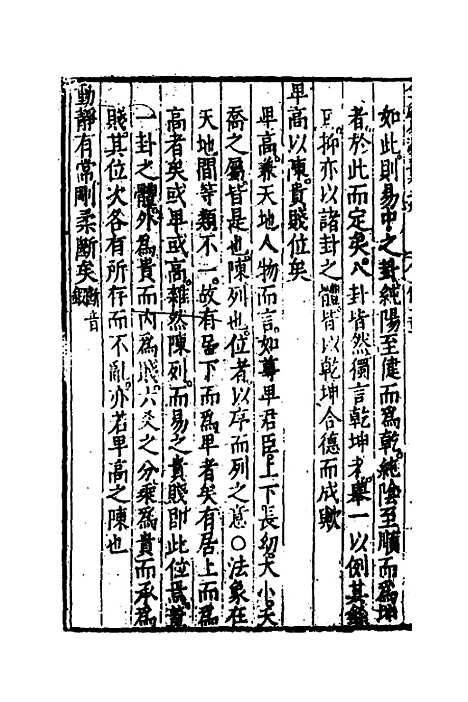 如此則易中之卦純陽至健而爲乾純陰至順而爲坤
者於此而定矣八卦皆然獨言乾坤者舉一以例其餘
耳抑亦以諸卦之體皆以乾坤合德而成歟
卑高以陳貴賤位矣
卑高兼天地人物而言如尊卑君臣上下長幼大小天
喬之屬皆是也陳列也位者以序而列之意○法象在
天地間等類不一故有居下而爲卑者矣有居上而爲
高者矣或卑或高雜然陳列而易之貴賤即此位焉蓋
一卦之體外爲貴而内爲賤六爻之分乘爲貴而承爲
賤其位次各有所存而不亂亦若卑高之陳也
動靜有常剛柔斷矣斷音鍛